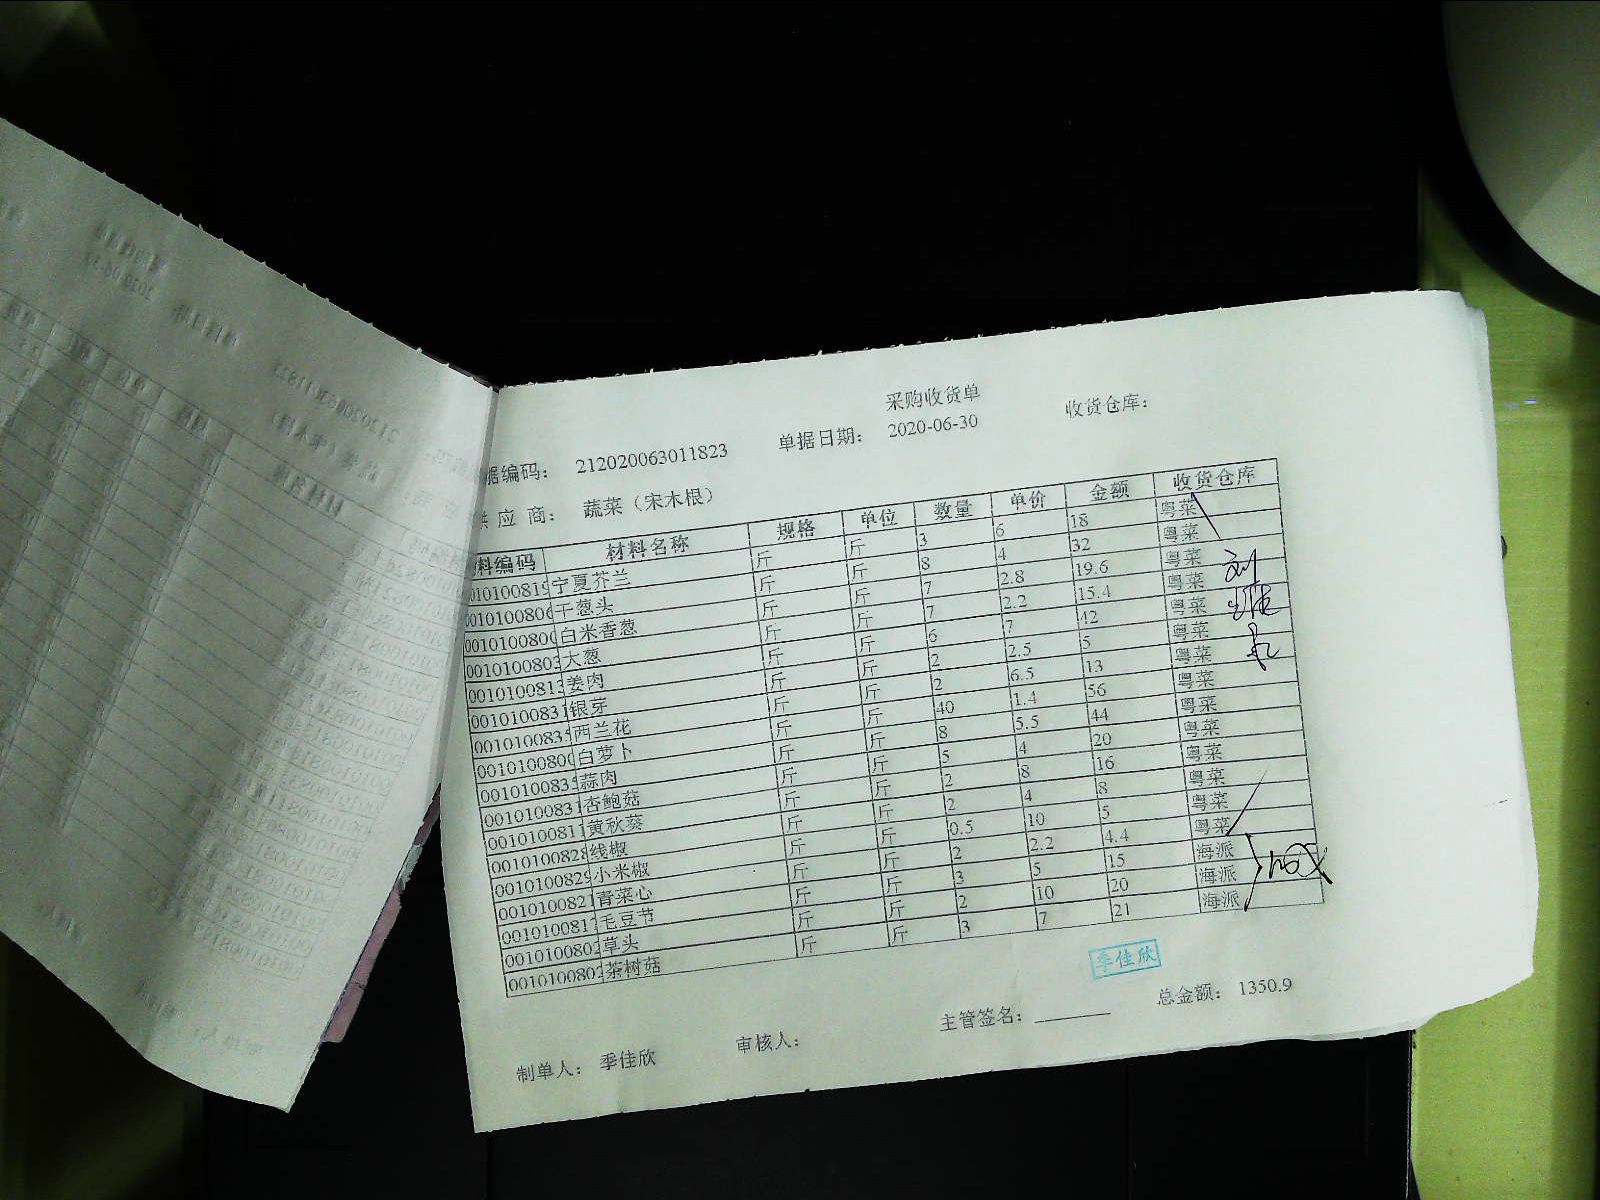 采购收货单
据编码： 212020063011823 单据日期： 2020-06-30 收货仓库：
供 应 商： 蔬菜（宋木根）
料编码 材料名称 规格 单位 数量 单价 金额 收货仓库
010100819 宁夏芥兰 斤 斤 3 6 18 粤菜
0010100806 干葱头 斤 斤 8 4 32 粤菜
0010100800 白米香葱 斤 斤 7 2.8 19.6 粤菜
0010100803 大葱 斤 斤 7 2.2 15.4 粤菜
0010100813 姜肉 斤 斤 6 7 42 粤菜
0010100831 银芽 斤 斤 2 2.5 5 粤菜
0010100835 西兰花 斤 斤 2 6.5 13 粤菜
0010100800 白萝卜 斤 斤 40 1.4 56 粤菜
0010100835 蒜肉 斤 斤 8 5.5 44 粤菜
0010100831 杏鲍菇 斤 斤 5 4 20 粤菜
0010100811 黄秋葵 斤 斤 2 8 16 粤菜
0010100828 线椒 斤 斤 2 4 8 粤菜
0010100829 小米椒 斤 斤 0.5 10 5 粤菜
0010100821 青菜心 斤 斤 2 2.2 4.4 粤菜
0010100817 毛豆节 斤 斤 3 5 15 海派
0010100802 草头 斤 斤 2 10 20 海派
0010100802 茶树菇 斤 斤 3 7 21 海派
季佳欣
制单人： 季佳欣 审核人： 主管签名： 总金额： 1350.9